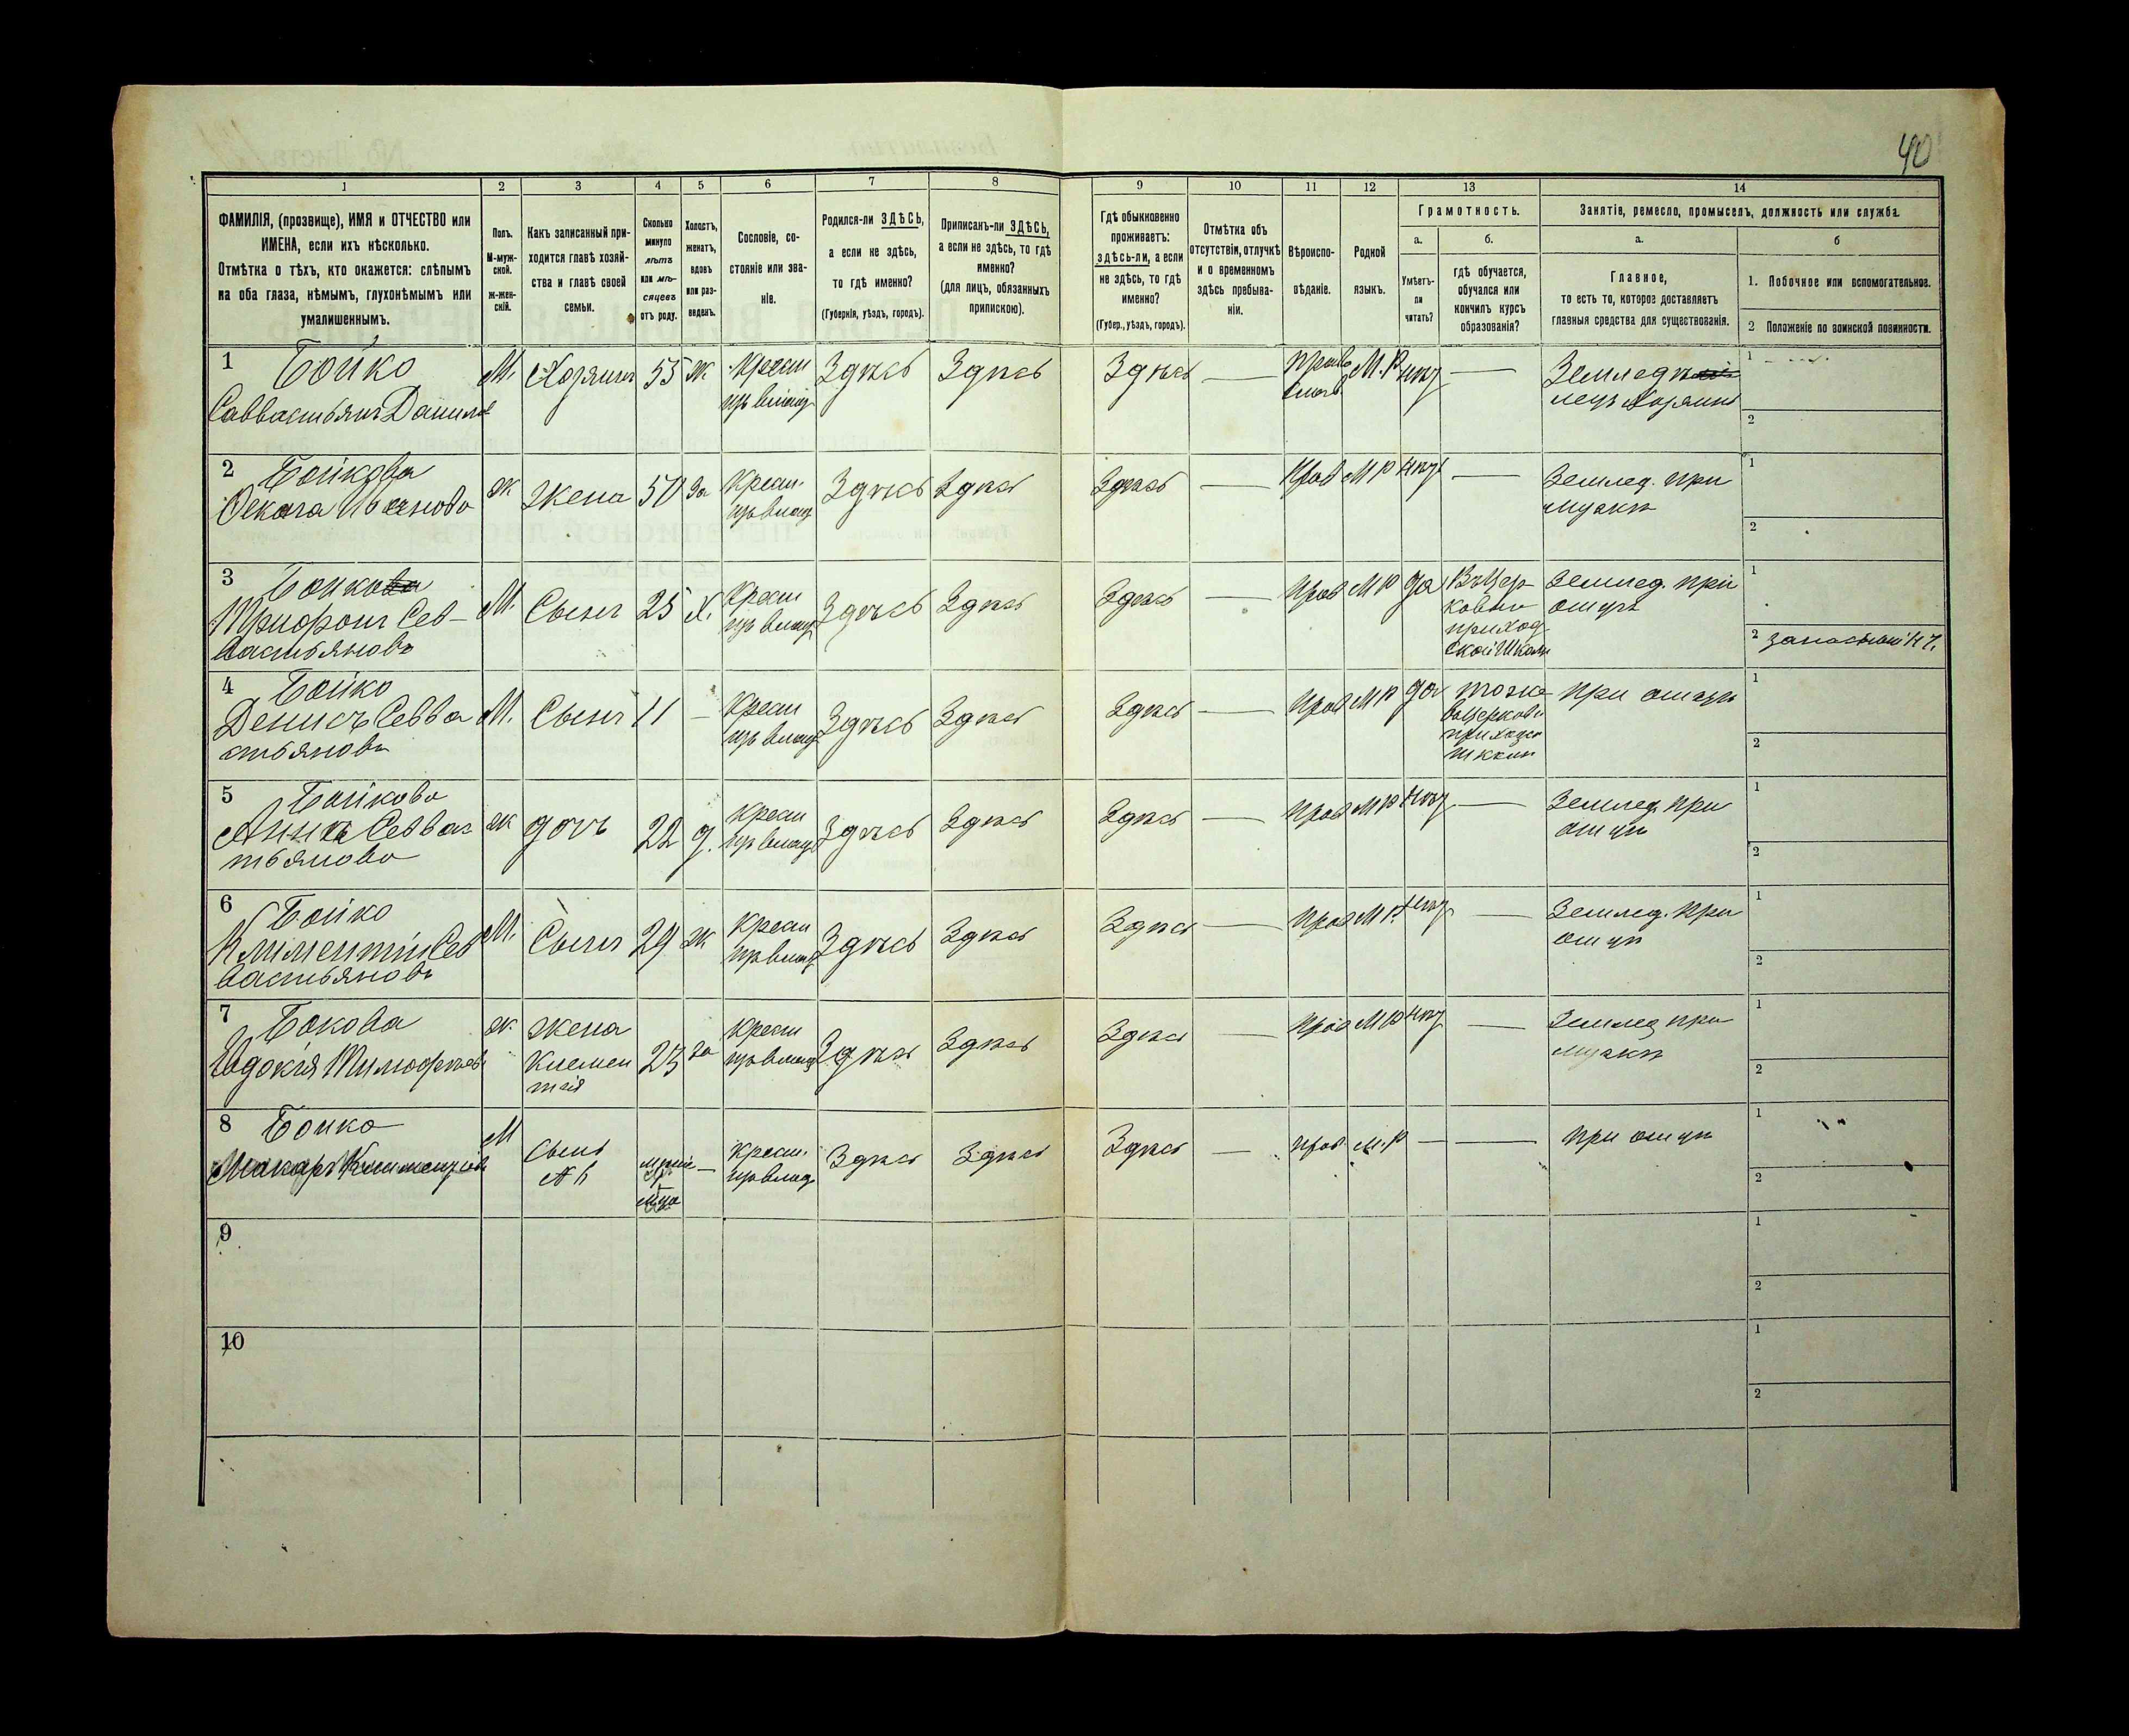 40
1 2 3 4 5 6 7 8 9 10 11 12 13 14
ФАМИЛІЯ, (прозвище), ИМЯ и ОТЧЕСТВО или
ИМЕНА, если ихъ нѣсколько.
Отмѣтка о тѣхъ, кто окажется: слѣпымъ
на оба глаза, нѣмымъ, глухонѣмымъ или
умалишеннымъ.
Полъ.
М-муж-
ской.
ж-жен-
скій.
Какъ записанный при-
ходится главѣ хозяй-
ства и главѣ своей
семьи.
Сколько
минуло
лѣтъ
или мѣ-
сяцевъ
отъ роду.
Холостъ,
женатъ,
вдовъ
или раз-
веденъ.
Сословіе, со-
стояніе или зва-
ніе.
Родился-ли ЗДѢСЬ,
а если не здѣсь,
то гдѣ именно?
(Губернія, уѣздъ, городъ).
Приписанъ-ли ЗДѢСЬ,
а если не здѣсь, то гдѣ
именно?
(для лицъ, обязанныхъ
припискою).
Гдѣ обыкновенно
проживаетъ:
здѣсь-ли, а если
не здѣсь, то гдѣ
именно?
(Губер., уѣздъ, городъ).
Отмѣтка объ
отсутствіи, отлучкѣ
и о временномъ
здѣсь пребыва-
ніи.
Вѣроиспо-
вѣданіе.
Родной
языкъ.
Грамотность.
а.
Умѣетъ-
ли
читать?
б.
гдѣ обучается,
обучался или
кончилъ курсъ
образованія?
Занятіе, ремесло, промыселъ, должность или служба.
а.
Главное,
то есть то, которое доставляетъ
главныя средства для существованія.
б
1. Побочное или вспомогательное.
2 Положеніе по воинской повинности.
1 Бойко
Савватьянъ Данилов
М. Хозяинъ 55 ж
Крестн
изъ владѣ
Здѣсь Здѣсь Здѣсь —
Право
слав.
М.Р нѣт —
Земледѣ
лецъ Хозяинъ
1
2
2 Бойкова
Ивановa
ж жена 50 за
Крест.
изъ влад
Здѣсь Здѣсь Здѣсь — Прав М Р нѣт —
Землед. при
мужѣ
1
2
3 Бойко
Трифонъ Сев-
астьяновъ
М. Сынъ 25 Х.
Крест
изъ влад
Здѣсь Здѣсь Здѣсь — Прав М Р да
Въ Цер-
ковно
приход
ской Школѣ
Землед. при
отцѣ
1
2 запасный
4 Бойко
Денисъ Севва
стьяновъ
М. Сынъ 11 —
Крест
изъ влад
Здѣсь Здѣсь Здѣсь — Прав М Р да
тоже
въ Церковно
приход
при отцѣ
1
2
5 Бойкова
Анна Севвас
тьянова
ж дочь 22 д.
Крест
изъ влад
Здѣсь Здѣсь Здѣсь — Прав М Р нѣт —
Землед. при
отцѣ
1
2
6 Бойко
Климентій Сев
астьяновъ
М. Сынъ 29 ж
Крест
изъ влад
Здѣсь Здѣсь Здѣсь — Прав М Р нѣт —
Землед. при
отцѣ
1
2
7 Бокова
Евдокія Тимофѣев
ж. жена
Клемен
тія
23 за
Крест
изъ влад
Здѣсь Здѣсь Здѣсь — Прав М Р нѣт —
Землед при
мужѣ
1
2
8 Бойко
Макаръ Климентіевъ
М Сынъ
—
Крест.
изъ влад
Здѣсь Здѣсь Здѣсь — прав М.Р — — при отцѣ
1
2
9
1
2
10
1
2